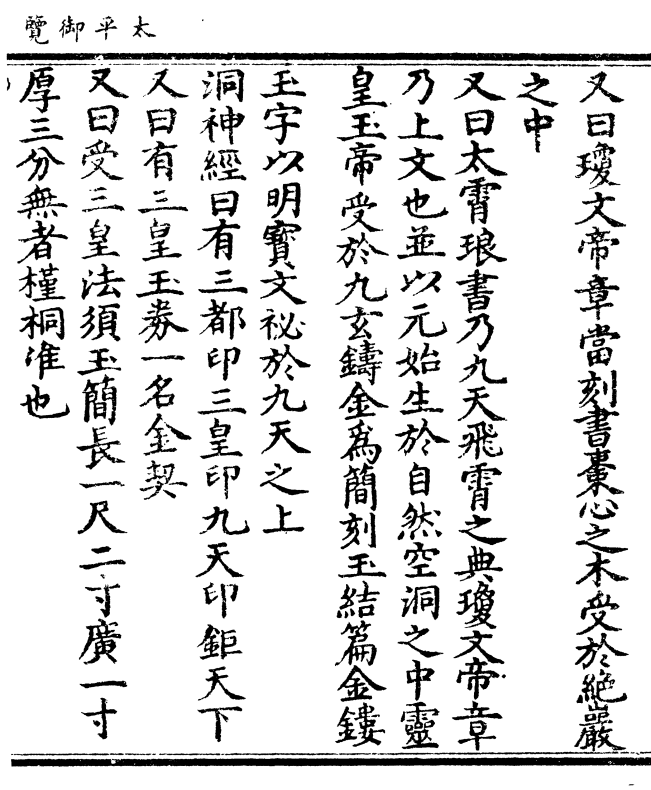 太平御覽
又曰瓊文帝章當刻書棗心之木受於絶巖
之中
又曰太霄琅書乃九天飛霄之典瓊文帝章
乃上文也並以元始生於自然空洞之中靈
皇玉帝受於九玄鑄金爲簡刻玉結篇金鏤
玉字以明寶文祕於九天之上
洞神經曰有三都印三皇印九天印鉅天下
又曰有三皇玉券一名金契
又曰受三皇法須玉簡長一尺二寸廣一寸
厚三分無者槿桐准也